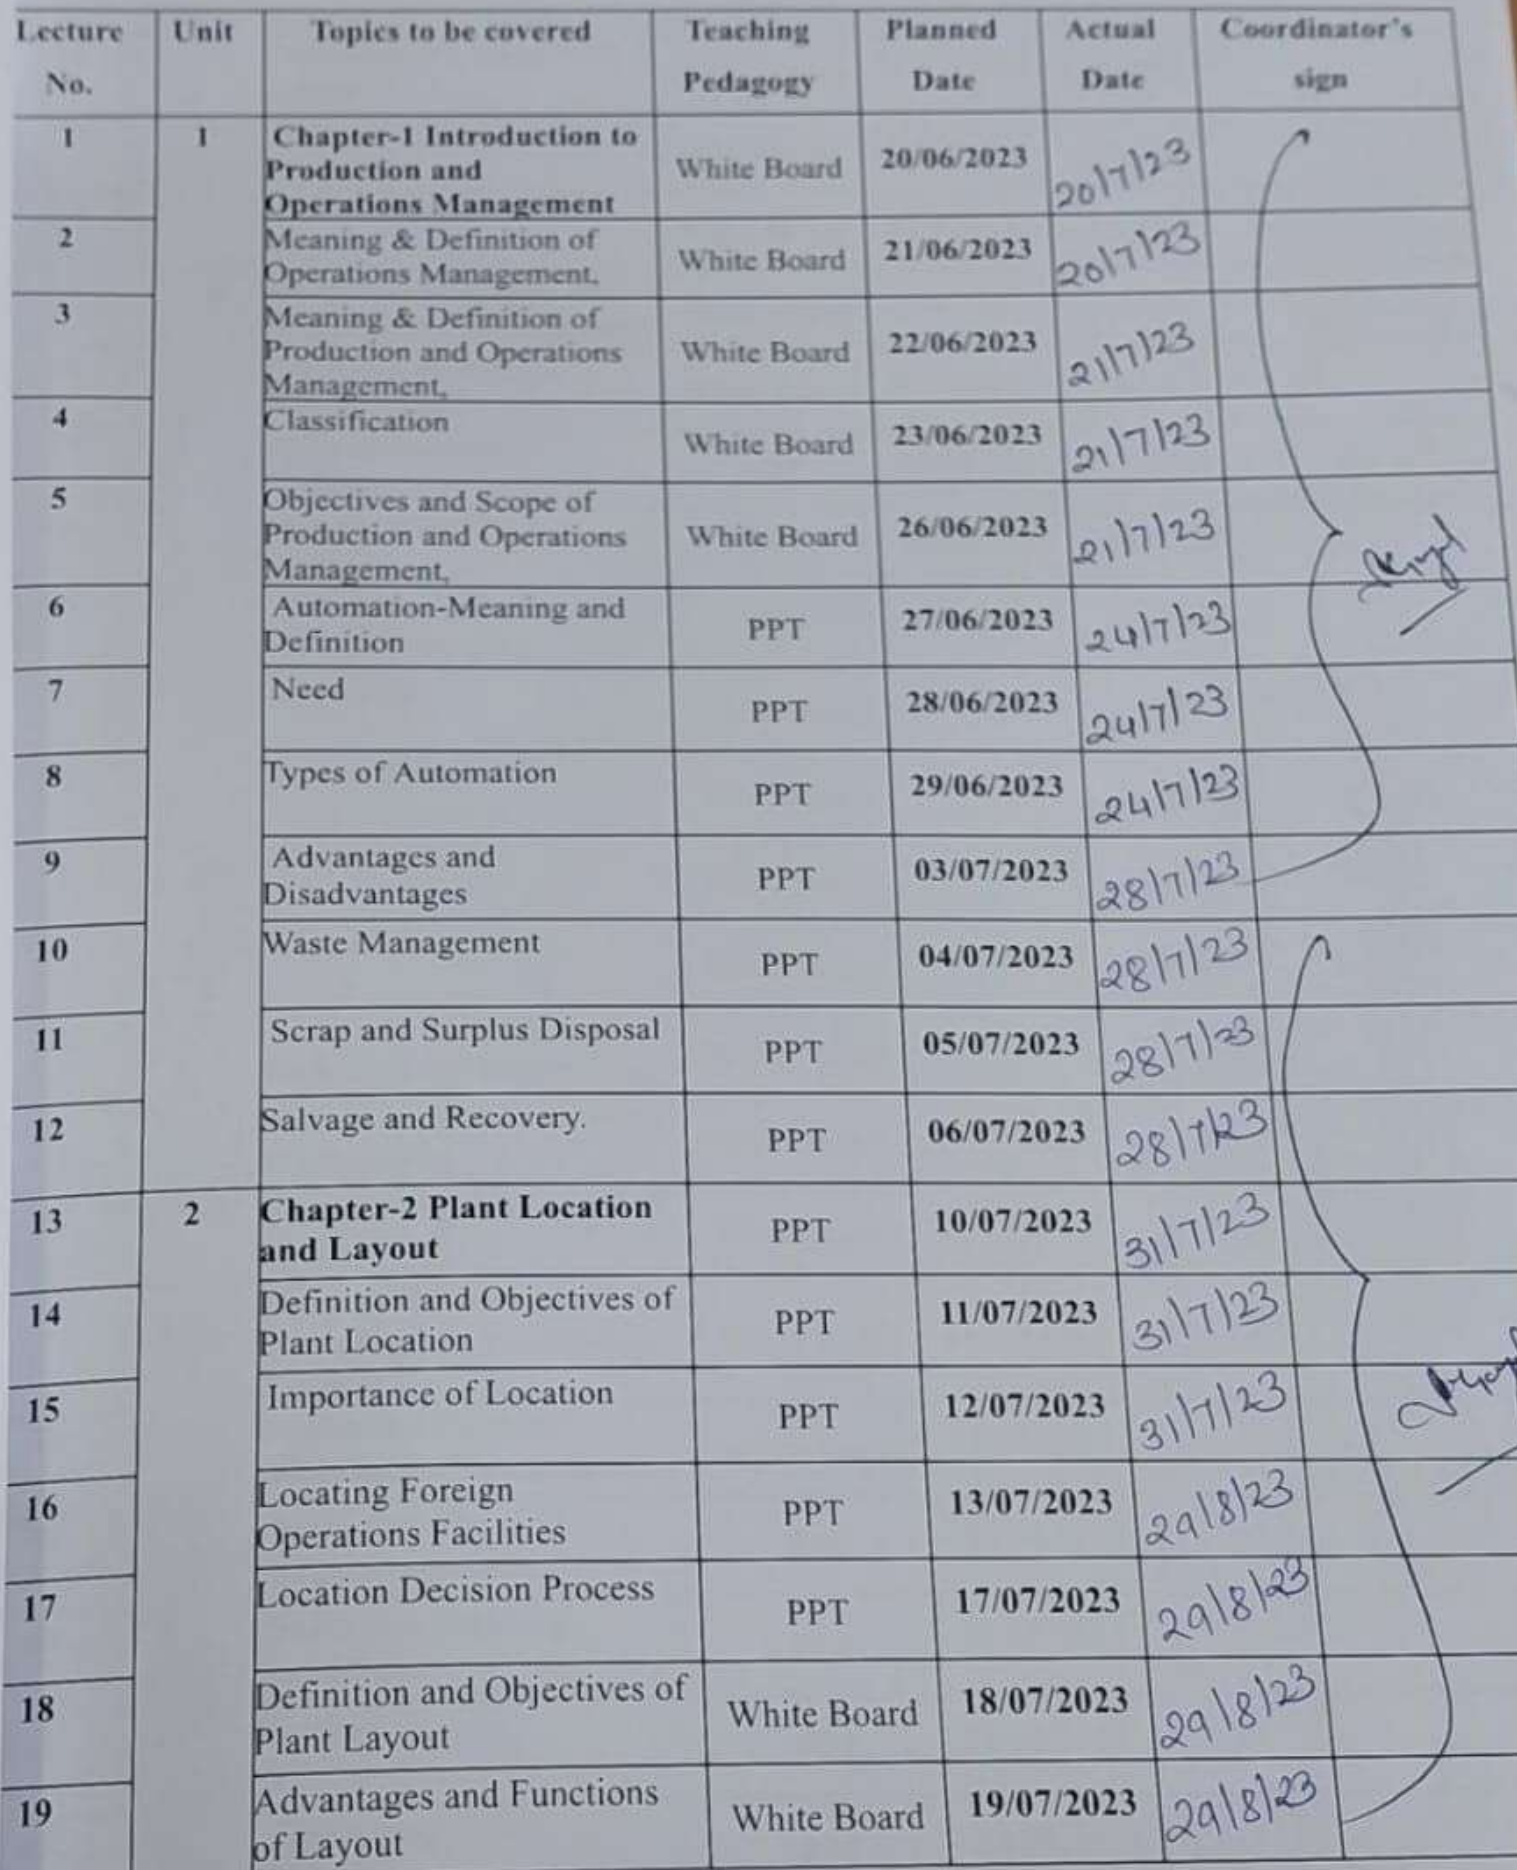 Lecture No. Unit Topics to be covered Teaching Pedagogy Planned Date Actual Date Coordinator's sign
1 1 Chapter-1 Introduction to Production and Operations Management White Board 20/06/2023 20/7/23
2 Meaning & Definition of Operations Management, White Board 21/06/2023 20/7/23
3 Meaning & Definition of Production and Operations Management, White Board 22/06/2023 21/7/23
4 Classification White Board 23/06/2023 21/7/23
5 Objectives and Scope of Production and Operations Management, White Board 26/06/2023 21/7/23
6 Automation-Meaning and Definition PPT 27/06/2023 24/7/23
7 Need PPT 28/06/2023 24/7/23
8 Types of Automation PPT 29/06/2023 24/7/23
9 Advantages and Disadvantages PPT 03/07/2023 28/7/23
10 Waste Management PPT 04/07/2023 28/7/23
11 Scrap and Surplus Disposal PPT 05/07/2023 28/7/23
12 Salvage and Recovery. PPT 06/07/2023 28/7/23
13 2 Chapter-2 Plant Location and Layout PPT 10/07/2023 31/7/23
14 Definition and Objectives of Plant Location PPT 11/07/2023 31/7/23
15 Importance of Location PPT 12/07/2023 31/7/23
16 Locating Foreign Operations Facilities PPT 13/07/2023 29/8/23
17 Location Decision Process PPT 17/07/2023 29/8/23
18 Definition and Objectives of Plant Layout White Board 18/07/2023 29/8/23
19 Advantages and Functions of Layout White Board 19/07/2023 29/8/23